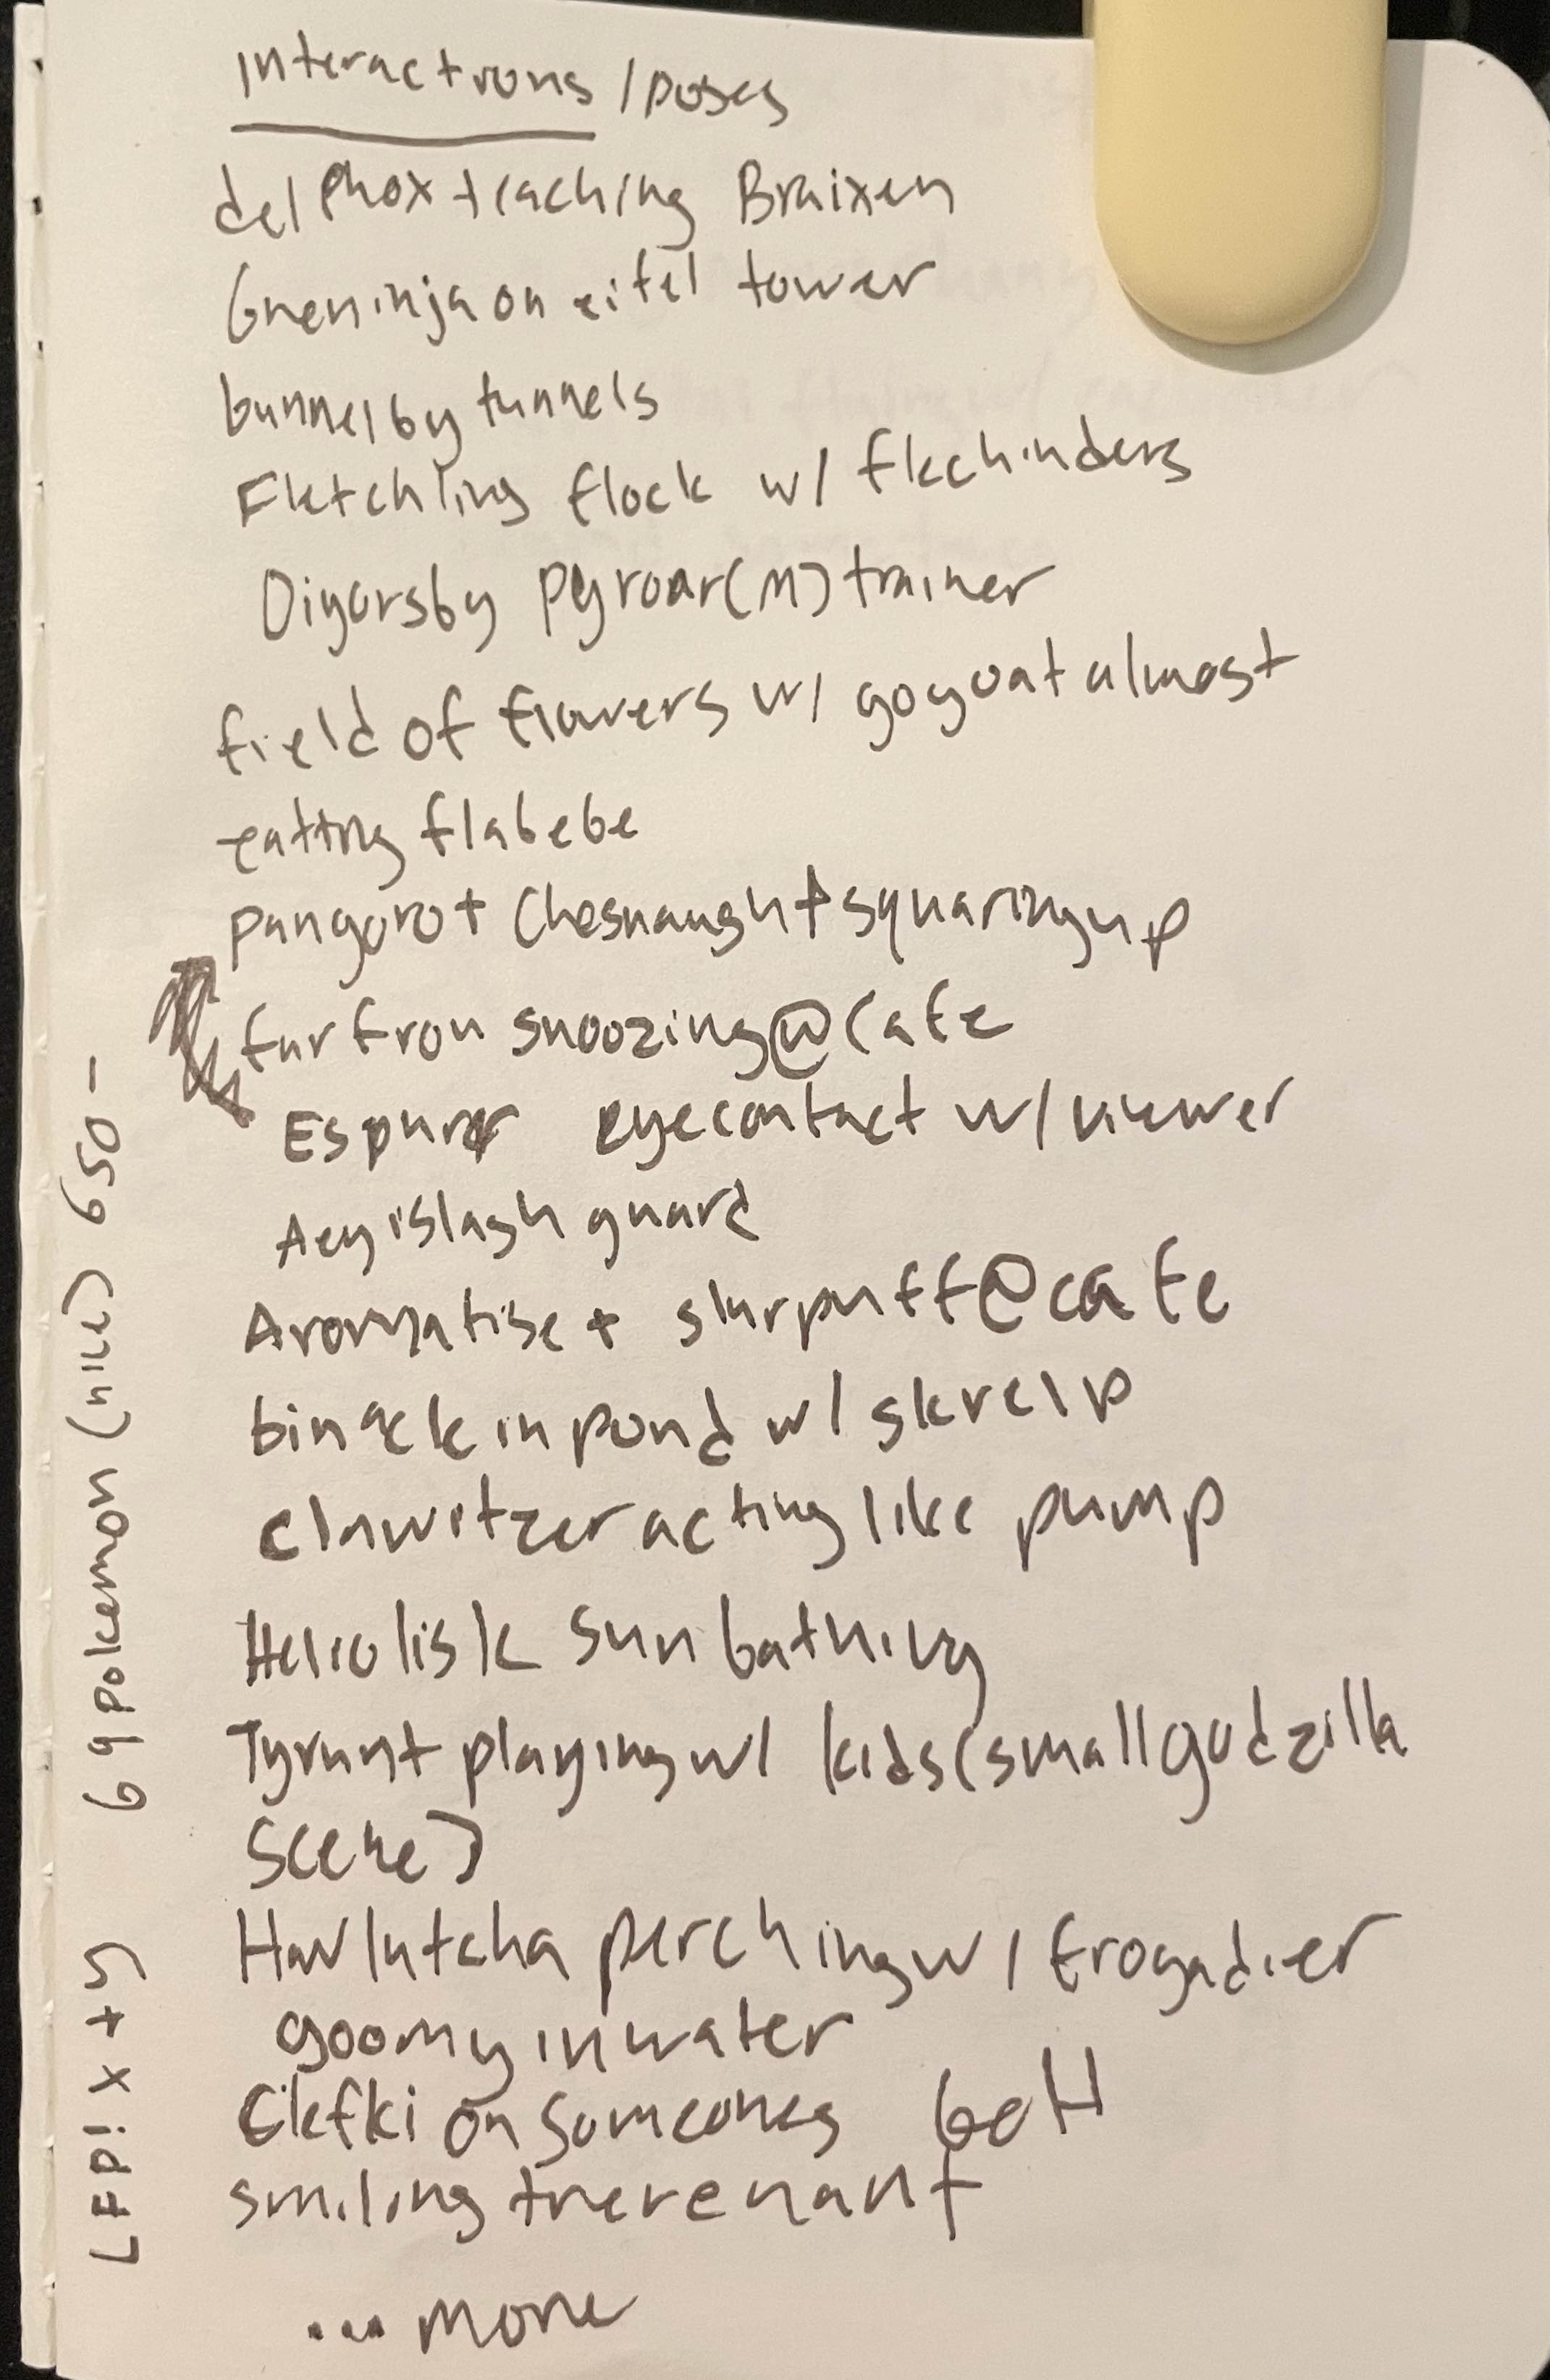 interactions / poses
delphox teaching Braixen
Greninja on eifel tower
bunnelby tunnels
Fletchling flock w/ flechinders
Digorsby pyroar (M) trainer
field of flowers w/ gogoat almost
eatting flabebe
pangoro + Chesnaught squaring up
furfrou snoozing @ Cafe
Espurr eyecontact w/ viewer
Aegislash guard
Aromatise + slurpuff @ cafe
binacle in pond w/ skrelp
clawitzer acting like pump
Heliolisk sun bathing
Tyrunt playing w/ kids (small godzilla
scene)
Hawlutcha perching w/ frogadier
goomy in water
Clefki on someones belt
smiling treverenant
... more
LFP! x + y 69 pokemon (nice) 650 -